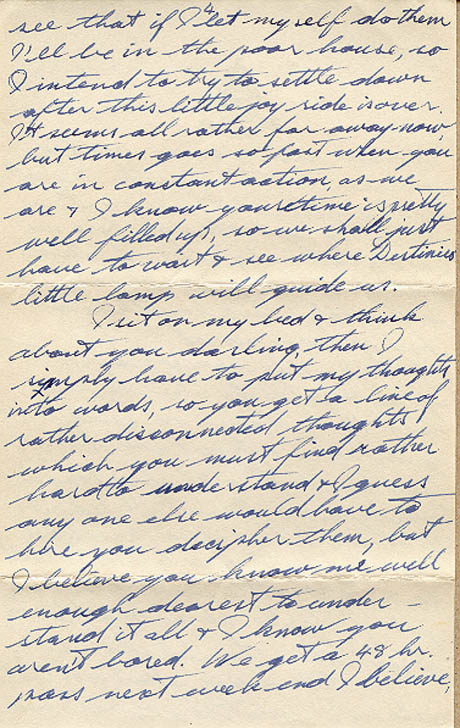 4
see that if I let myself do them
I'll be in the poor house, so
I intend to try to settle down
after this little joy ride is over.
It seems all rather far away now,
but times goes so fast when you
are in constant action, as we
are & I know your time is pretty
well filled up, so we shall just
have to wait & see where Destinies
little lamp will guide us.
I sit on my bed & think
about you darling, then I
simply have to put my thoughts
into words, so you get a line of
rather disconnected thoughts
which you must find rather
hard to understand & I guess
any one else would have to
hire you decipher them, but
I believe you know me well
enough dearest to under-
stand it all & I know you
aren't bored. We get a 48 hr.
pass next week end I believe,